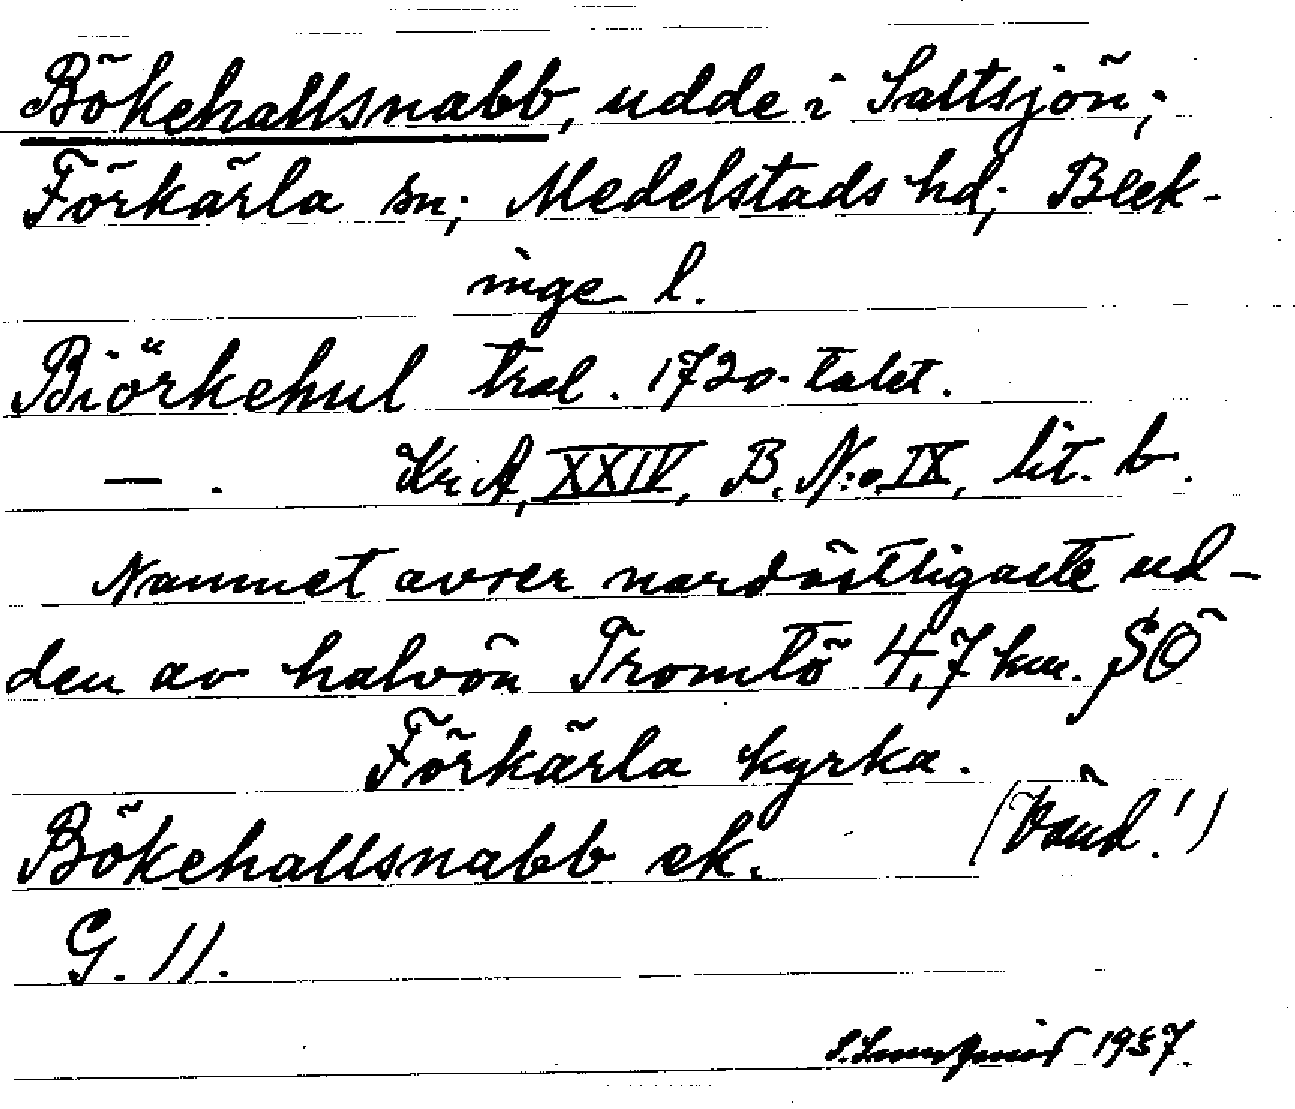 Bökehallsnabb, udde i Saltsjön;
Förkärla sn; Medelstads hd; Blek-
inge l.
Biörkehul tral. 1720-talet.
— . Kr A, XXIV, B. N:o IX, lit. b.
Namnet avser nordöstligaste ud-
den av halvön Tromtö 4,7 km. SÖ
Förkärla kyrka.
(Vänd!)
Bökehallsnabb ek.
G. 11.
1957.